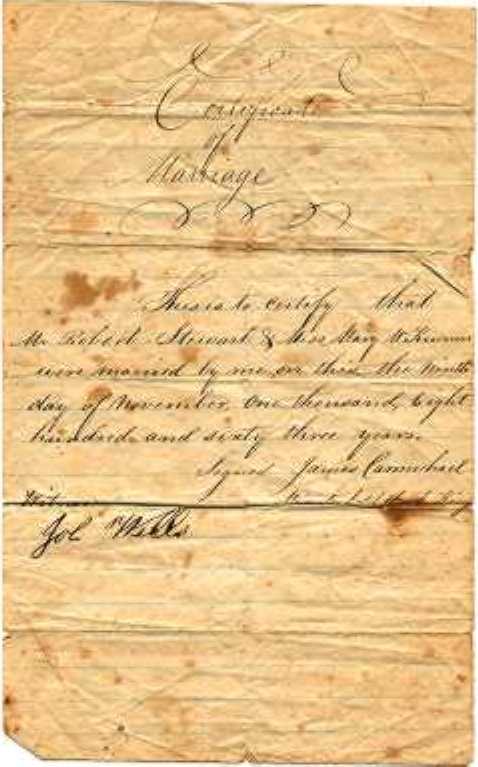 Certificate
of
Marriage
This is to certify that
Mr Robert Stewart & Miss Mary
were married by me on this the Ninth
day of November, One thousand, Eight
hundred and sixty three years.
Signed James Carmichael
Witness
Joe Wells